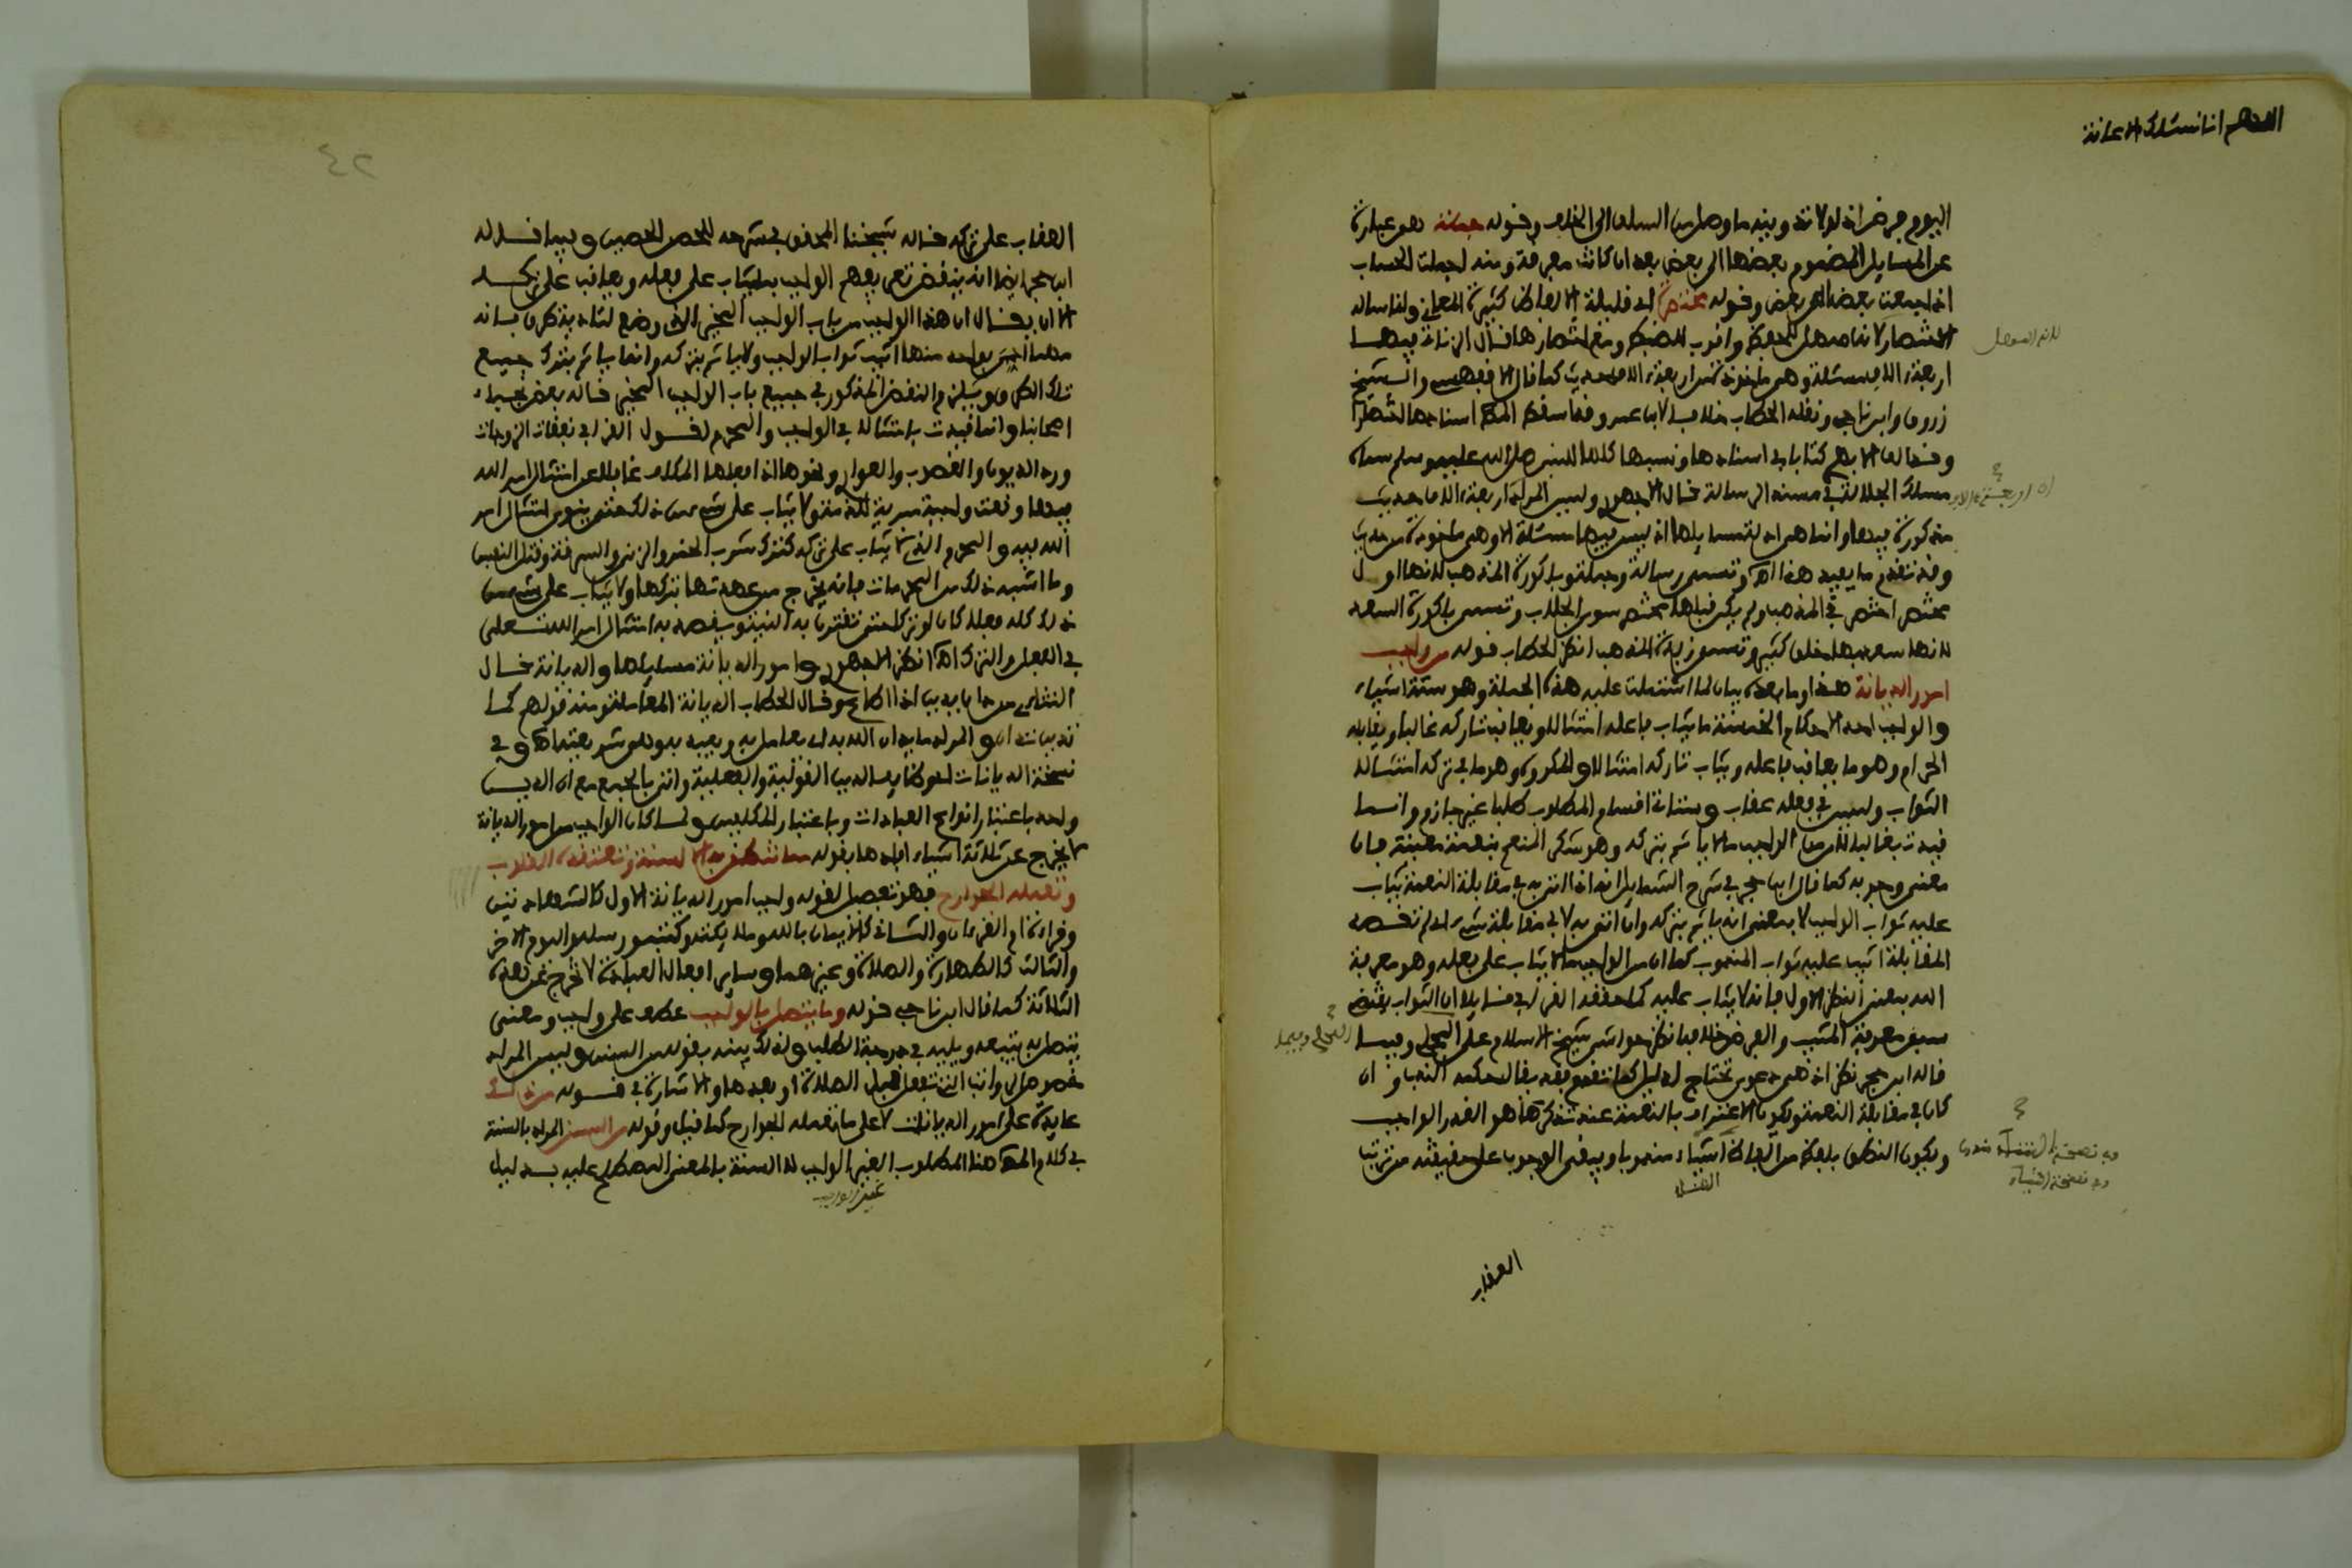 اللهم انا نسئلك الاعانة
اليوم من ضرائه لولاته وبينه ما وصل من السلف الى الخلف وقوله جملة هو عبارة
عن المسايل المضموم بعضها الى بعض بعد ان كانت مفرقة ومنه اجملت الحساب
اذا جمعت بعضه الى بعض وقوله مختصرة اي قليلة الالفاظ كثيرة المعاني ولنا ساله
الاختصار لانه اسهل للحفظ واقرب للضبط ومع اختصارها قال الزناتي فيها
اربعة الاف مسئلة وهي ماخوذة من اربعة الاف حديث كما قال الاقفهسي والشيخ
زروق وابن ناجي ونقله الحطاب خلافا لابن عمر وقد اسقط المص اسنادها اختصارا
وقد الف الابهري كتابا في اسنادها ونسبها كلها للنبي صلى الله عليه وسلم سماه
مسلك الجلالة في مسند الرسالة قال الاجهوري وليس المراد اربعة الاف حديث
مذكورة فيها وانما هي ادلة مسايلها اذ ليس فيها مسئلة الا وهي ماخوذة من حديث
وقد تقدم ما يفيد هذا اه وتسمى رسالة وجملة وباكورة المذهب لانها اول
مختصر اختصر في المذهب ولم يكن قبلها مختصر سوى الجلاب وتسمى باكورة السعد
لانها سعد بها خلق كثير وتسمى زبدة المذهب انظر الحطاب قوله من واجب
امور الديانة هذا وما بعده بيان لما اشتملت عليه هذه الجملة وهو ستة اشياء
والواجب احد الاحكام الخمسة ما يثاب فاعله امتثالا ويعاقب تاركه غالبا ويقابله
الحرام وهو ما يعاقب فاعله ويثاب تاركه امتثالا والمكروه وهو ما في تركه امتثالا
الثواب وليس في فعله عقاب وستاتي اقسام المطلوب طلبا غير جازم وانما
قيدت بغالبا لان من الواجب ما لا ياثم بتركه وهو شكر المنعم بنعمة معينة فان
معنى وجوبه كما قال ابن حجر في شرح الشمايل انه اذا اتى به في مقابلة النعمة يثاب
عليه ثواب الواجب لا بمعنى انه ياثم بتركه وان اتى به لا في مقابلة شيء اي لم تقصد
المقابلة اثيب عليه ثواب المندوب كما ان من الواجب ما لا يثاب على فعله وهو معرفة
الله بمعنى النظر الاول فانه لا يثاب عليه كما حققه القرافي قائلا ان الثواب يقتضي
سبق معرفة المثيب والفرض خلافه انظر حواشي شيخ الاسلام على المحلي وفيما
قاله ابن حجر نظر اذ هي دعوى تحتاج لدليل كما تقدم فقد يقال حكمه الندب وان
كان في مقابلة النعمة ويكون الاعتراف بالنعمة عند تذكرها هو القدر الواجب
ويكون النطق بلفظ من الفاظ الثناء مندوبا ويبقى الوجوب على حقيقته مترتبا
العقاب
العقاب على تركه قاله شيخنا المحقق في شرحه للحصن الحصين وفيما قاله
ابن حجر ايضا انه ينقض تعريفهم الواجب بما يثاب على فعله ويعاقب على تركه
الا ان يقال ان هذا الواجب من باب الواجب المخير
تلك الطرق والنقض المذكور في جميع باب الواجب المخير قاله بعض
اصحابنا وانما قيدت بامتثالا في الواجب والمحرم لقول القرافي نفقات الزوجات
ورد الديون والغصوب والعواري ونحوها اذا فعلها المكلف غافلا عن امتثال امر الله
فيها وقعت واجبة مبرية للذمة ولا يثاب على شيء من ذلك حتى ينوي امتثال امر
الله فيه والمحرم الذي لا يثاب على تركه كترك شرب الخمر والزنى والسرقة وقتل النفس
وما اشبه ذلك من المحرمات فانه يخرج من عهدتها بتركها ولا يثاب على شيء من
ذلك كله فعلا كان او تركا حتى تقترن به النية ويقصد به امتثال امر الله تعلى
في الفعل والترك اه انظر الاجهوري وامور الديانة مسايلها والديانة قال
التتائي من دان يدين اذا اطاع وقال الحطاب الديانة المعاملة ومنه قولهم كما
تدين تدان والمراد ما يدان الله به اي يعامل به ويعبد به وهو شريعته اه وفي
نسخة الديانات اي وظايف الدين القولية والفعلية واتى بالجمع مع ان الدين
واحد باعتبار انواع العبادات وباعتبار المكلفين ولما كان الواجب من امور الديانة
لا يخرج عن ثلاثة اشياء افادها بقوله مما تنطق به الالسنة وتعتقده القلوب
وتعمله الجوارح فهو تفصيل لقوله واجب امور الديانة الاول كالشهادتين
وقراءة ام القرءان والثاني كالايمان بالله وملائكته وكتبه ورسله واليوم الاخر
والثالث كالطهارة والصلاة وغيرهما وساير افعال العبادة لا تخرج عن هذه
الثلاثة كما قال ابن ناجي قوله وما يتصل بالواجب عطف على واجب ومعنى
يتصل به يتبعه ويليه في درجة الطلب ولذلك بينه بقوله من السنن وليس المراد
خصوص الرواتب التي تفعل قبل الصلاة او بعدها والاشارة في قوله من ذلك
عايدة على امور الديانات لا على ما تعمله الجوارح كما قيل وقوله من السنن المراد بالسنة
في كلام المص هنا المطلوب الغير الواجب لا السنة بالمعنى المصطلح عليه بدليل
غير الواجب